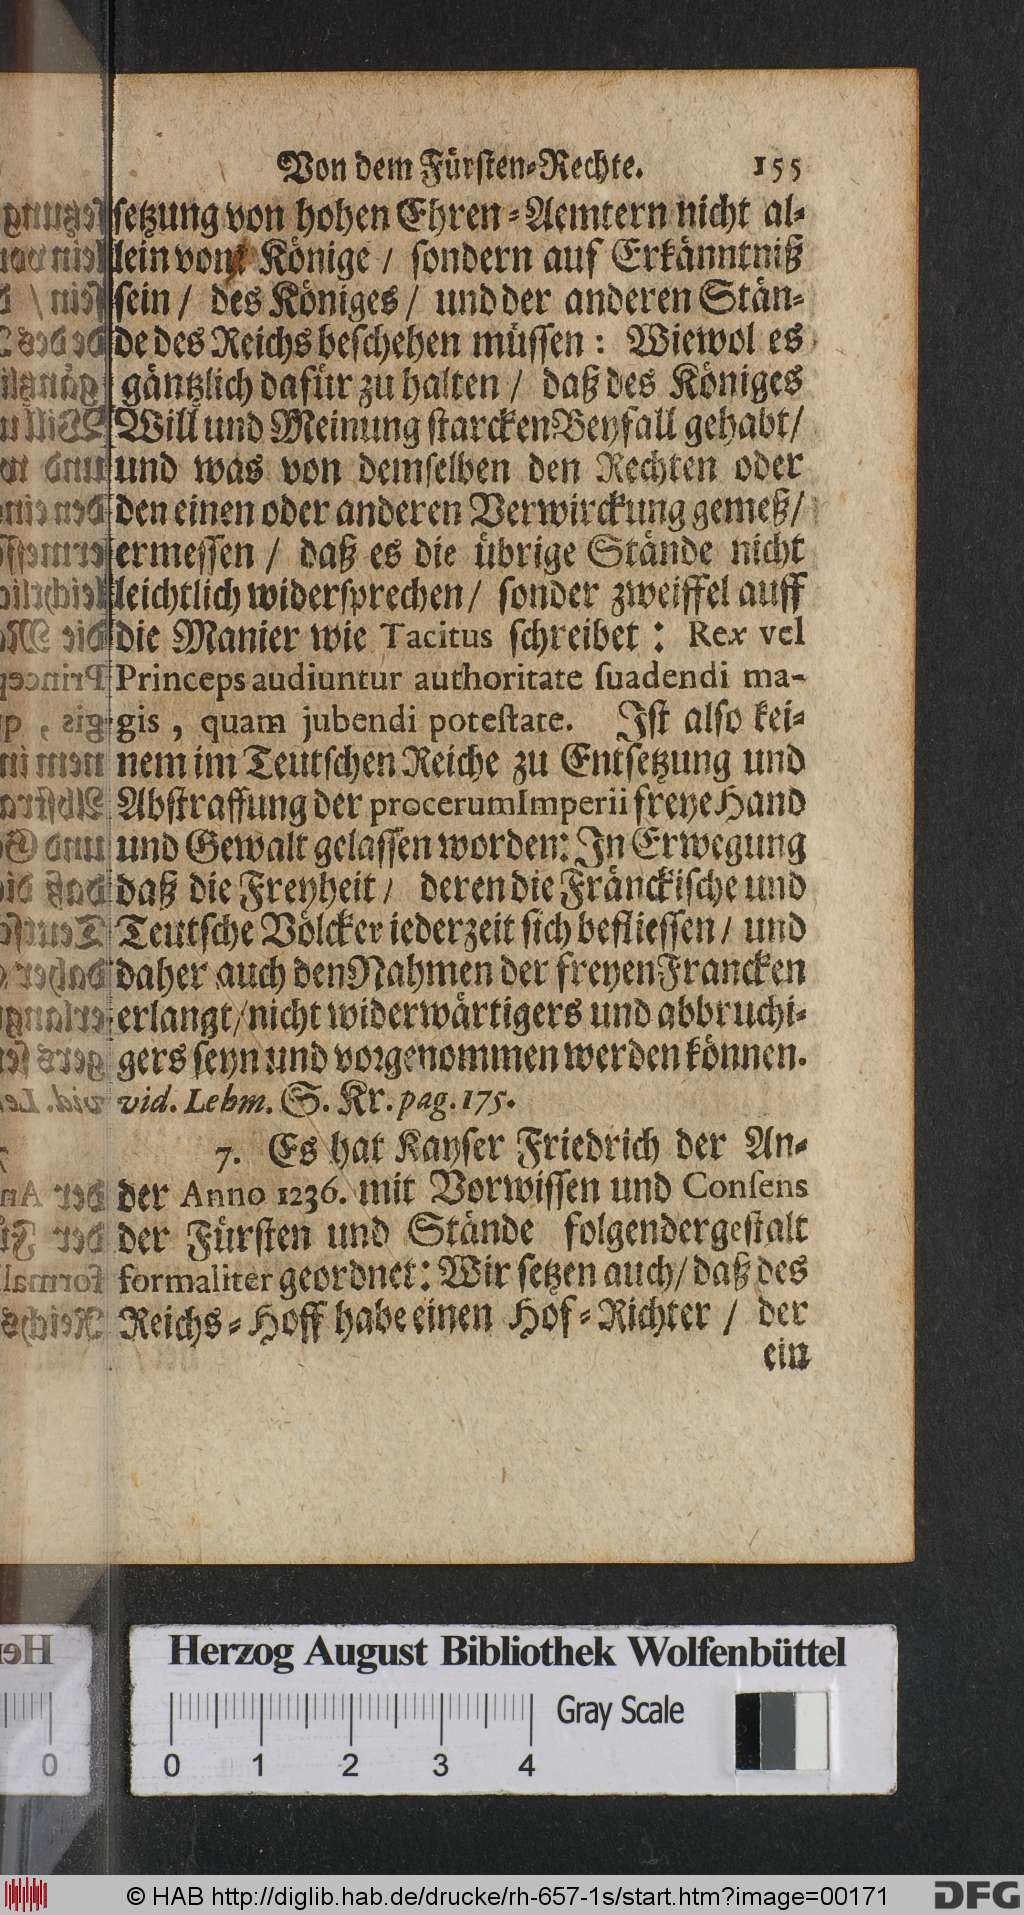 Von dem Fürsten-Rechte. 155
setzung von hohen Ehren-Aemtern nicht al-
lein vom Könige / sondern auf Erkänntniß
sein / des Königes / und der anderen Stän-
de des Reichs beschehen müssen: Wiewol es
gäntzlich dafür zu halten / daß des Königes
Will und Meinung starcken Beyfall gehabt/
und was von demselben den Rechten oder
den einen oder anderen Verwirckung gemeß/
ermessen / daß es die übrige Stände nicht
leichtlich widersprechen/ sonder zweiffel auff
die Manier wie Tacitus schreibet: Rex vel
Princeps audiuntur authoritate suadendi ma-
gis, quam jubendi potestate. Ist also kei-
nem im Teutschen Reiche zu Entsetzung und
Abstraffung der procerum Imperii freye Hand
und Gewalt gelassen worden: In Erwegung
daß die Freyheit/ deren die Fränckische und
Teutsche Völcker iederzeit sich befliessen/ und
daher auch den Nahmen der freyen Francken
erlangt/nicht widerwärtigers und abbruchi-
gers seyn und vorgenommen werden können.
vid. Lehm. S. Kr. pag. 175.
7. Es hat Kayser Friedrich der An-
der Anno 1236. mit Vorwissen und Consens
der Fürsten und Stände folgendergestalt
formaliter geordnet: Wir setzen auch/ daß des
Reichs-Hoff habe einen Hof-Richter / der
ein
Herzog August Bibliothek Wolfenbüttel
Gray Scale
0 1 2 3 4
© HAB http://diglib.hab.de/drucke/rh-657-1s/start.htm?image=00171
DFG